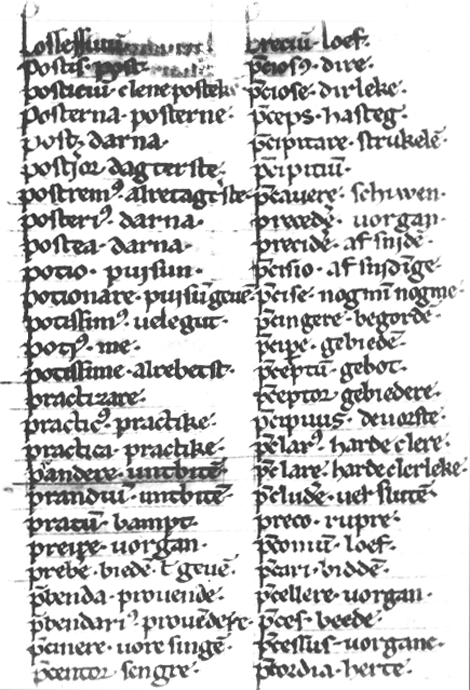 possessiuū
postis· post·
posticiū· clene posteke
Posterna· posterne·
post· darna·
postꝫor· dagterste·
postremꝰ· alretagtꝰste·
posteriꝰ· darna·
postea· darna·
potio· puisun·
potionare· puisūgeuē·
potissimꝰ· uelegut·
potꝰ· me·
potissime· alrebetst·
practizare·
practicꝰ· practike·
practica· practike·
p̄andere· untbitē·
prandiū· untbitē·
pratū· bampt·
preire· uorgan·
prebē· biedē·
p̄benda· prouende·
p̄bendariꝰ· prouēdere·
p̄cinere· uore singē·
p̄centor· sengre·
preciū· loef·
p̄ciosꝰ· dire·
p̄ciose· dirleke·
p̄ceps· hasteg·
p̄cipitare· strukelē·
p̄cipitiū·
p̄cauere· schiwen·
precedē· uorgan·
precidē· af snidē·
p̄cisio· af snidīge·
p̄cise· nog mī nog me·
p̄cingere· begordē·
p̄cipe· gebiedē·
p̄ceptū· gebot·
p̄ceptor· gebiedere·
p̄cipuus· deuorste·
p̄clarꝰ· harde clere·
p̄clare· harde clerleke·
p̄cludē· uer slutē·
preco· rupre·
p̄coniū· loef·
p̄cari· biddē·
p̄cellere· uorgan·
p̄ces· beede·
p̄cessus· uorganc·
p̄cordia· herte·